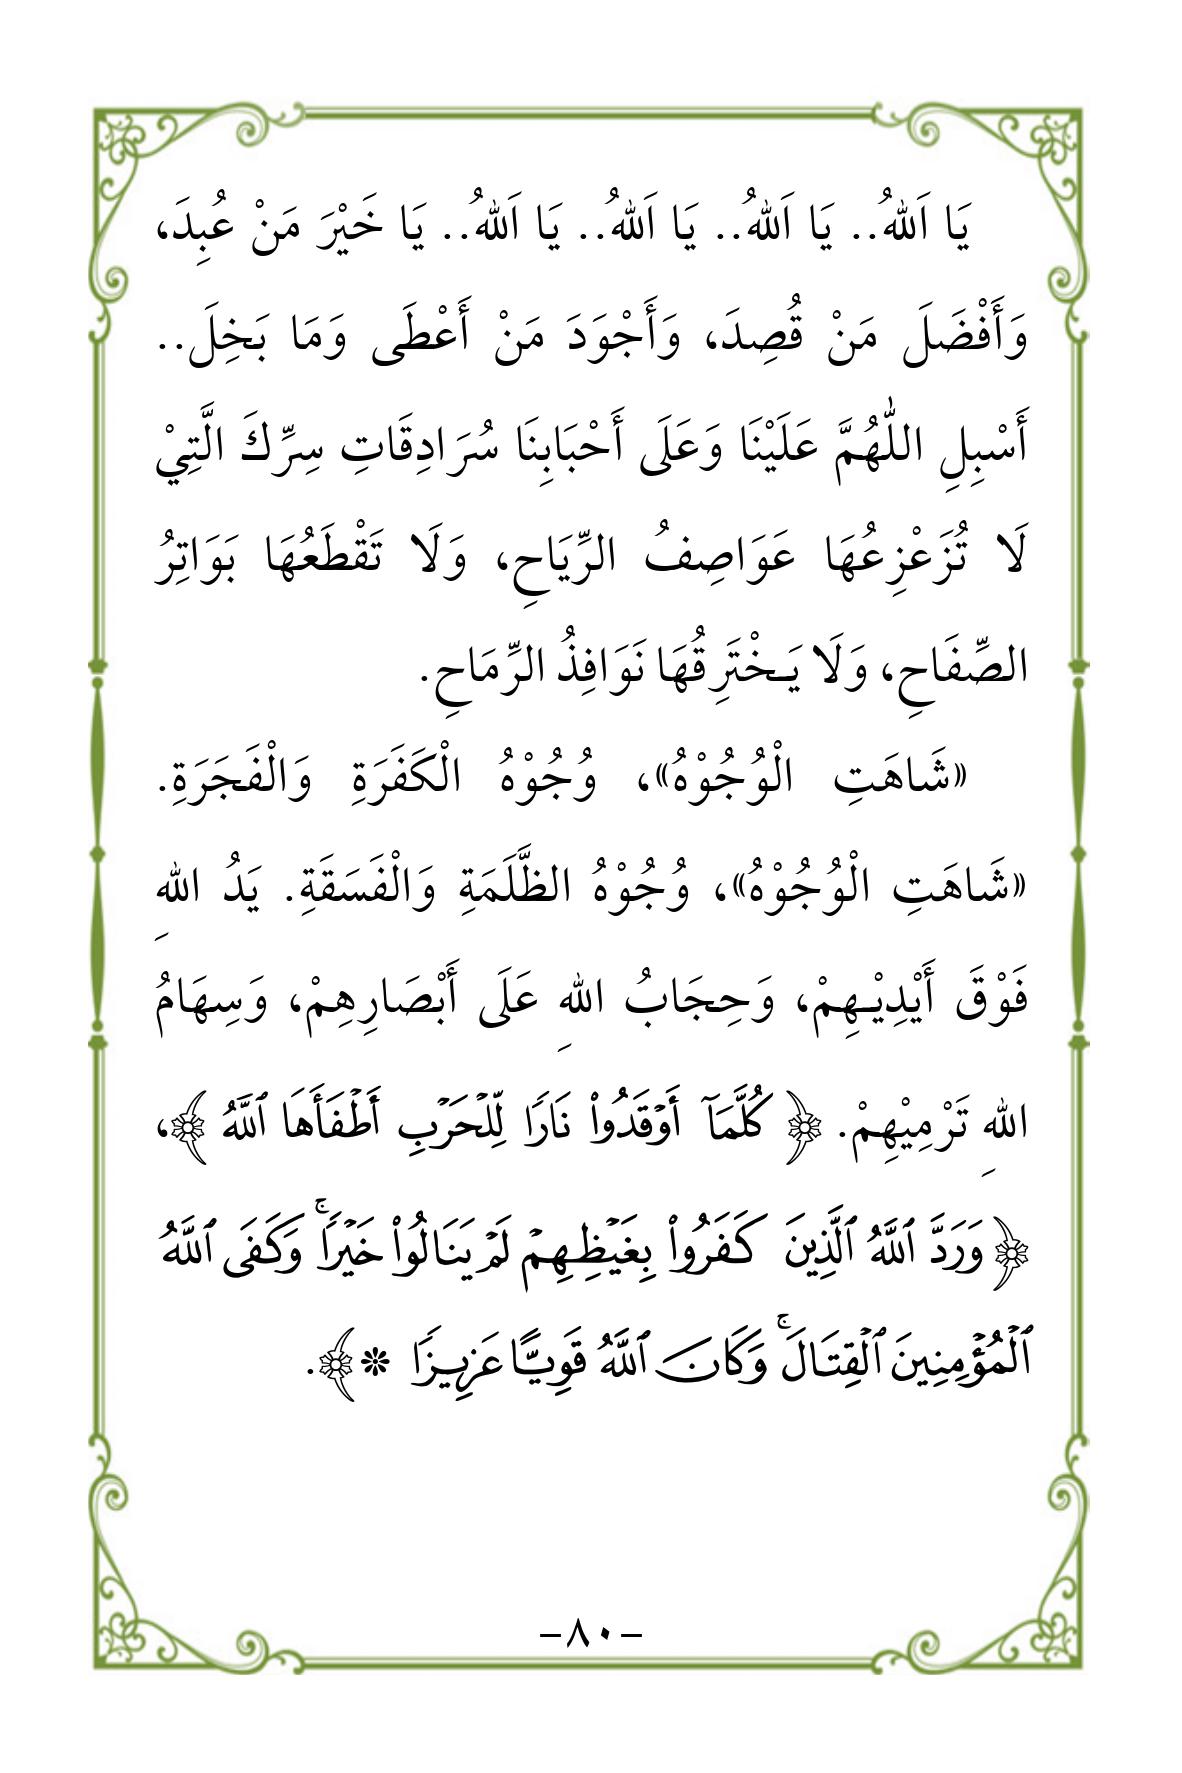 يَا اَللهُ.. يَا اَللهُ.. يَا اَللهُ.. يَا اَللهُ.. يَا خَيْرَ مَنْ عُبِدَ،
وَأَفْضَلَ مَنْ قُصِدَ، وَأَجْوَدَ مَنْ أَعْطَى وَمَا بَخِلَ..
أَسْبِلِ اللّٰهُمَّ عَلَيْنَا وَعَلَى أَحْبَابِنَا سُرَادِقَاتِ سِرِّكَ الَّتِيْ
لَا تُزَعْزِعُهَا عَوَاصِفُ الرِّيَاحِ، وَلَا تَقْطَعُهَا بَوَاتِرُ
الصِّفَاحِ، وَلَا يَـخْتَرِقُهَا نَوَافِذُ الرِّمَاحِ.
«شَاهَتِ الْوُجُوْهُ»، وُجُوْهُ الْكَفَرَةِ وَالْفَجَرَةِ.
«شَاهَتِ الْوُجُوْهُ»، وُجُوْهُ الظَّلَمَةِ وَالْفَسَقَةِ. يَدُ اللهِ
فَوْقَ أَيْدِيْـهِمْ، وَحِجَابُ اللهِ عَلَى أَبْصَارِهِمْ، وَسِهَامُ
اللهِ تَرْمِيْهِمْ. ﴿ كُلَّمَآ أَوۡقَدُواْ نَارٗا لِّلۡحَرۡبِ أَطۡفَأَهَا ٱللَّهُ ﴾،
﴿وَرَدَّ ٱللَّهُ ٱلَّذِينَ كَفَرُواْ بِغَيۡظِهِمۡ لَمۡ يَنَالُواْ خَيۡرٗاۚ وَكَفَى ٱللَّهُ
ٱلۡمُؤۡمِنِينَ ٱلۡقِتَالَۚ وَكَانَ ٱللَّهُ قَوِيًّا عَزِيزٗا ❋﴾.
–٨٠–